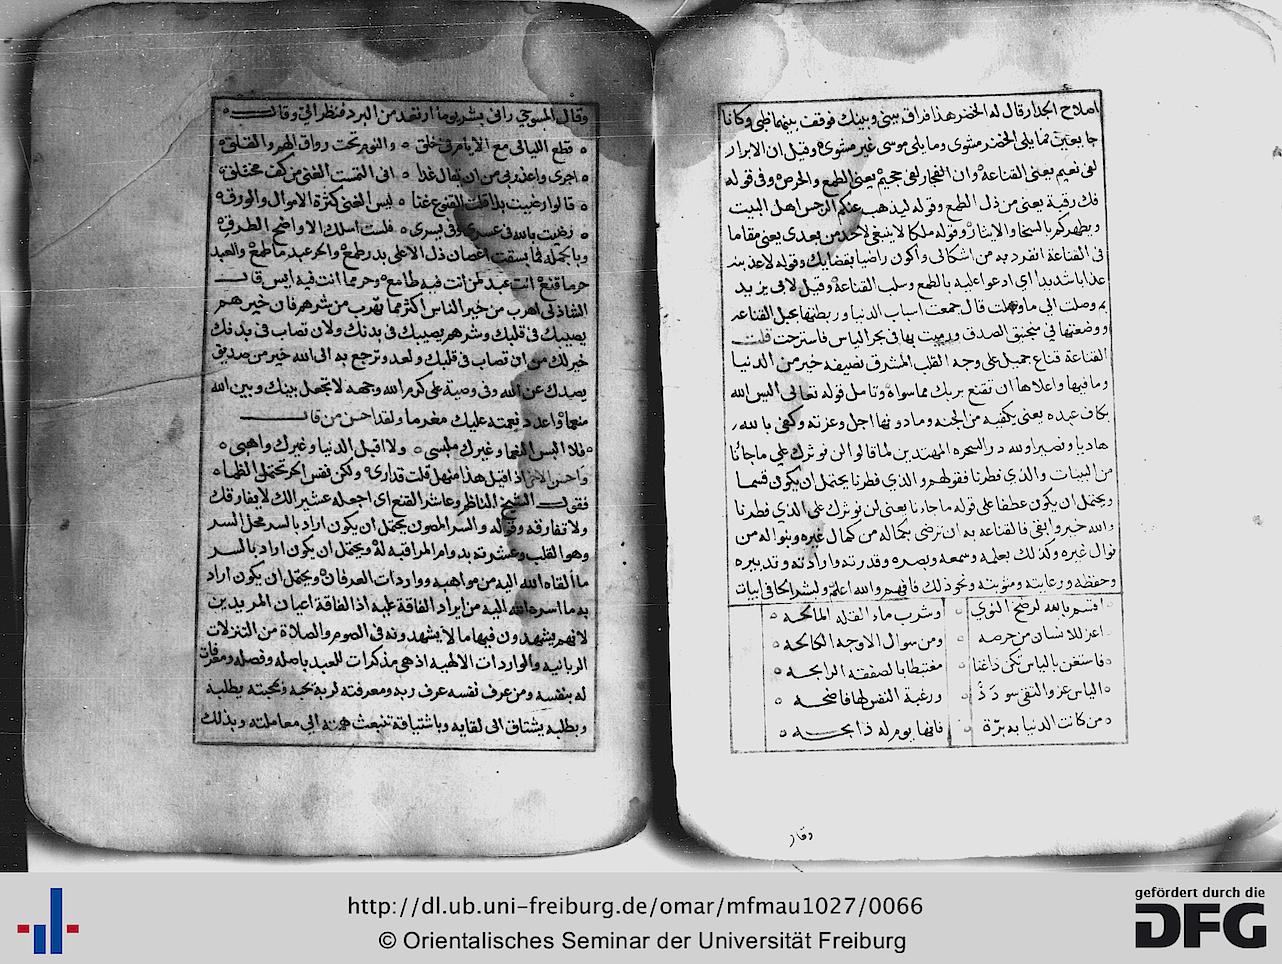 اصلاح الجدار قال له الخضر هذا فراق بيني وبينك فوقف بينهما ظبي وكانا
جايعين مما يلي الخضر مشوى وما يلي موسى غير مشوى وقيل ان الابرار
لفي نعيم يعني القناعة وان الفجار لفي جحيم يعني الطمع والحرص وفي قوله
فك رقبة يعني من ذل الطمع وقوله ليذهب عنكم الرجس اهل البيت
ويطهركم بالسخا والايثار وقوله ملكا لا ينبغي لاحد من بعدى يعني مقاما
في القناعة انفرد به من اشكالى واكون راضيا بقضايك وقوله لاعذبنه
عذابا شديدا اى ادعوا عليه بالطمع وسلب القناعة وقيل لابي يزيد
بم وصلت الى ما وصلت قال جمعت اسباب الدنيا وربطتها بحبل القناعه
ووضعتها في منجنيق الصدق ورميت بها في بحر الياس فاسترحت قلت
القناعة قناع جميل على وجه القلب المشرق نصيفه خير من الدنيا
وما فيها واعلاها ان تقنع بربك مما سواه وتامل قوله تعالى اليس الله
بكاف عبده يعني يكفيه من الجنه وما دونها اجل وعزته وكفى بالله
هاديا ونصيرا ولله در السحره المهتدين لما قالوا لن نوثرك على ما جائنا
من البينات والذي فطرنا فقولهم والذي فطرنا يحتمل ان يكون قسما
ويحتمل ان يكون عطفا على قوله ما جاءنا يعني لن نوثرك على الذي فطرنا
والله خير وابقى فالقناعه به ان ترضى بكماله من كمال غيره وبنواله من
نوال غيره وكذلك بعلمه وسمعه وبصره وقدرته وارادته وتدبيره
وحفظه ورعايته ومثوبته ونحو ذلك فافهم والله اعلم ولبشر الحافي ابيات
اقسم بالله لرضخ النوى وشرب ماء القله المالحه
اعز للانسان من حرصه ومن سوال الاوجه الكالحه
فاستغن بالياس تكن ذا غنا مغتبطا بالصفقه الرابحه
الياس عز والتقى سودد ورغبة النفس لها فاضحه
من كانت الدنيا به برة فانها يوم له ذابحه
وقال
وقال المسوحي رانى بشر يوما ارتعد من البرد فنظر الي وقال
قطع الليالى مع الايام في خلق والنوم تحت رواق الهم والقلق
احرى واعذر بي من ان يقال غدا انى التمست الغنى من كف مختلق
قالوا رضيت بذا قلت القنوع غنا ليس الغنى كثرة الاموال والورق
رضيت بالله في عسرى وفي يسرى فلست اسلك الا واضح الطرق
وبالجملة فما بسقت اغصان ذل الا على بذر طمع والحر عبد ما طمع والعبد
حر ما قنع انت عبد لمن انت فيه طامع وحر مما انت فيه ايس قال
الشاذلى اهرب من خير الناس اكثر مما تهرب من شرهم فان خيرهم
يصيبك في قلبك وشرهم يصيبك في بدنك ولان تصاب في بدنك
خير لك من ان تصاب في قلبك ولعدو ترجع به الى الله خير من صديق
يصدك عن الله وفي وصية على كرم الله وجهه لا تجعل بينك وبين الله
منعما واعدد نعمته عليك مغرما ولقد احسن من قال
فلا البس النعما وغيرك ملبسي ولا اقبل الدنيا وغيرك واهبى
اذا قيل هذا منهل قلت قد ارى ولكن نفس الحر تحتمل الظما
فقول الشيخ الناظر وعاشر القنع اى اجعله عشيرا لك لا يفارقك
ولا تفارقه وقوله والسر المصون يحتمل ان يكون اراد بالسر محل السر
وهو القلب وعشرته بدوام المراقبة له ويحتمل ان يكون اراد بالسر
ما القاه الله اليه من مواهبه وواردات العرفان ويحتمل ان يكون اراد
به ما اسره الله اليه من ايراد الفاقة عليه اذ الفاقة اعياد المريدين
لانهم يشهدون فيها ما لا يشهدونه في الصوم والصلاة من التنزلات
الربانيه والواردات الالهيه اذ هي مذكرات للعبد باصله وفصله ومعرفات
له بنفسه ومن عرف نفسه عرف ربه ومعرفته لربه تحبه وبمحبته يطلبه
وبطلبه يشتاق الى لقايه وباشتياقه تنبعث همته الى معاملته وبذلك
http://dl.ub.uni-freiburg.de/omar/mfmau1027/0066
© Orientalisches Seminar der Universität Freiburg
gefördert durch die
DFG